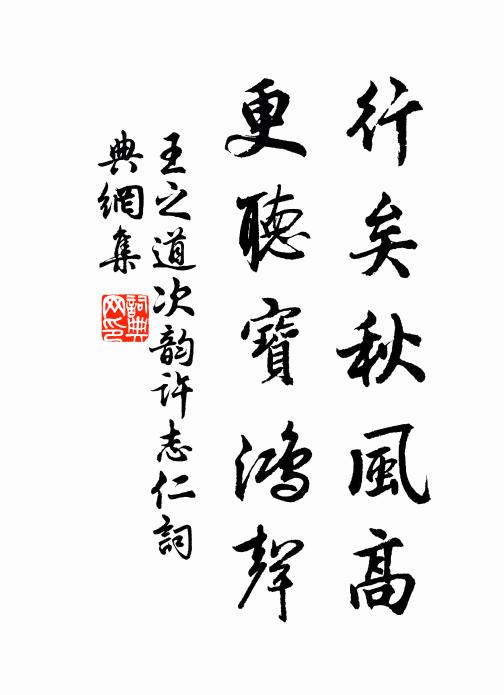 行矣秋風高
更聽寶鴻聲
王之道次韵許志仁詞
典網集
詞典網印